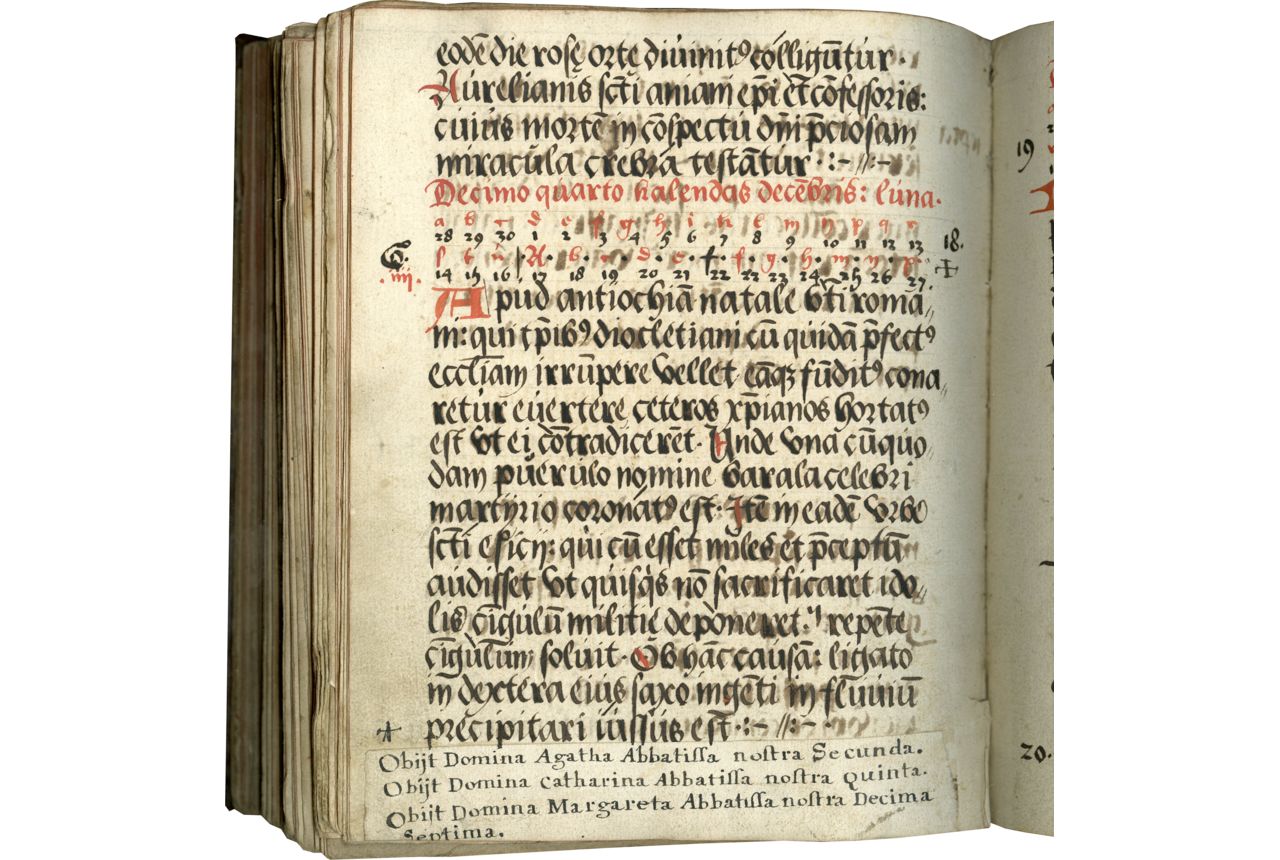 eodē die rosę orte diuinitꝰ colligūtur ·
Aurelianis scti aniani epi et cōfessoris:
cuius mortē in cōspectu dni pciosam
miracula crebra testātur · : ~ // : ~
Decimo quarto kalendas decēbris: luna.
a b c d e f g h i k l m n p q r
28 29 30 1 2 3 4 5 6 7 8 9 10 11 12 13 18.
G. s t u A· b· c· d· e· f· f· g· h· m· n· p·
.iiii. 14 15 16 17 18 19 20 21 22 23 24 25 26 27
Apud antiochiā natale bti roma„
ni: qui tpibꝰ diocletiani cū quidā pfectꝰ
eccliam irrūpere vellet eāqꝫ fūditꝰ cona„
retur euertere ceteros xpianos hortatꝰ
est vt ei cōtradicerēt · Vnde vna cū quo„
dam puerulo nomine barala celebri
martyrio coronatꝰ est · Itē in eadē vrbe
scti esicij: qui cū esset miles et pceptū
audisset vt quisqs nō sacrificaret ido„
lis cīgulū militie deponeret · repēte
cīgulum soluit · Ob hāc causā: ligato
in dextera eius saxo ingēti in fluuiū
precipitari iussus est · : ~ // : ~
Obijt Domina Agatha Abbatissa nostra Secunda.
Obijt Domina Catharina Abbatissa nostra Quinta.
Obijt Domina Margareta Abbatissa nostra Decima
Septima.
19
20.